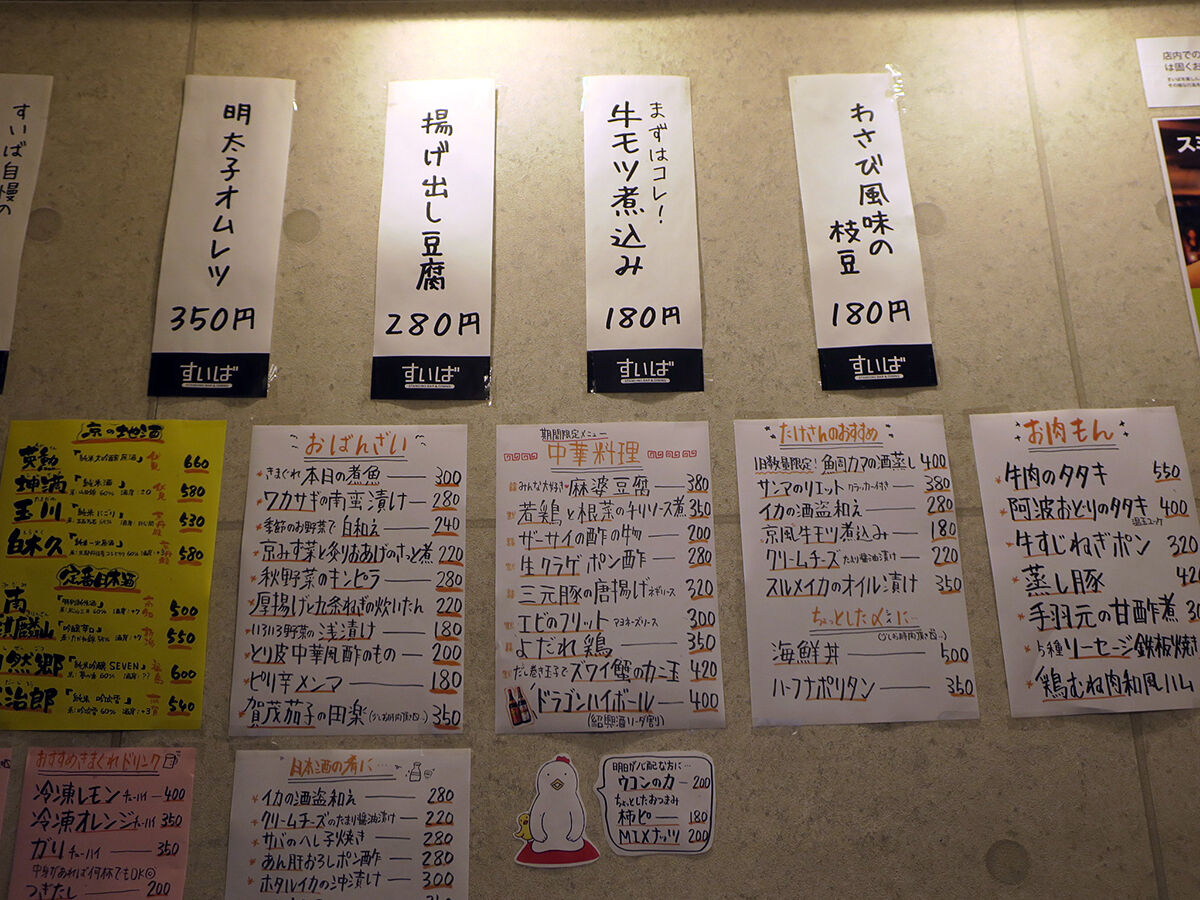 すいば自慢の
明太子オムレツ
350円
すいば
揚げ出し豆腐
280円
すいば
STANDING BAR & DINING
まずはコレ!
牛モツ煮込み
180円
すいば
STANDING BAR & DINING
わさび風味の
枝豆
180円
すいば
STANDING BAR & DINING
店内での
は固くお
京の地酒
英勲 『純米大吟醸原酒』 伏見 660
坤滴 『純米酒』 伏見 580
玉川 『純米にごり』
白木久 580
定番日本酒
南 『特別純米酒』 500
麒麟山 『吟醸辛口』 550
自然郷 『純米吟醸 SEVEN』 福島 600
治郎 『純米 吟吹雪』 540
おばんざい
きまぐれ 本日の煮魚 300
ワカサギの南蛮漬け 280
季節のお野菜で 白和え 240
京みず菜と炙りおあげのさっと煮 220
秋野菜のキンピラ 280
厚揚げと九条ねぎの炊いたん 220
いろいろ野菜の浅漬け 180
とり皮中華風酢のもの 200
ピリ辛メンマ 180
賀茂茄子の田楽 350
期間限定メニュー
中華料理
みんな大好き 麻婆豆腐 380
若鶏と根菜のチリソース煮 350
ザーサイの酢の物 200
生クラゲポン酢 280
三元豚の唐揚げ ネギソース 320
エビのフリット マヨネーズソース 300
よだれ鶏 350
だし巻き玉子で ズワイ蟹のカニ玉 420
ドラゴンハイボール 400
(紹興酒ソーダ割り)
たけさんのおすすめ
1日数量限定! 魚肉カマの酒蒸し 400
サンマのリエット クラッカー付き 380
イカの酒盗和え 280
京風牛モツ煮込み 180
クリームチーズ たまり醤油漬け 220
スルメイカのオイル漬け 350
ちょっとした〆に…
海鮮丼 500
ハーフナポリタン 350
お肉もん
牛肉のタタキ 550
阿波おどりのタタキ 400
牛すじねぎポン 320
蒸し豚 420
手羽元の甘酢煮
5種ソーセージ鉄板焼
鶏むね肉和風ハム
おすすめきまぐれドリンク
冷凍レモンチューハイ 400
冷凍オレンジチューハイ 350
ガリチューハイ 350
中身があれば何杯でもOK◎
つぎたし 200
日本酒の肴に…
イカの酒盗和え 280
クリームチーズのたまり醤油漬け 220
サバのへしこ焼き 280
あん肝おろしポン酢 280
ホタルイカの沖漬け 300
明日が心配な方に…
ウコンの力 200
ちょっとしたおつまみ
柿ピー 180
MIXナッツ 200